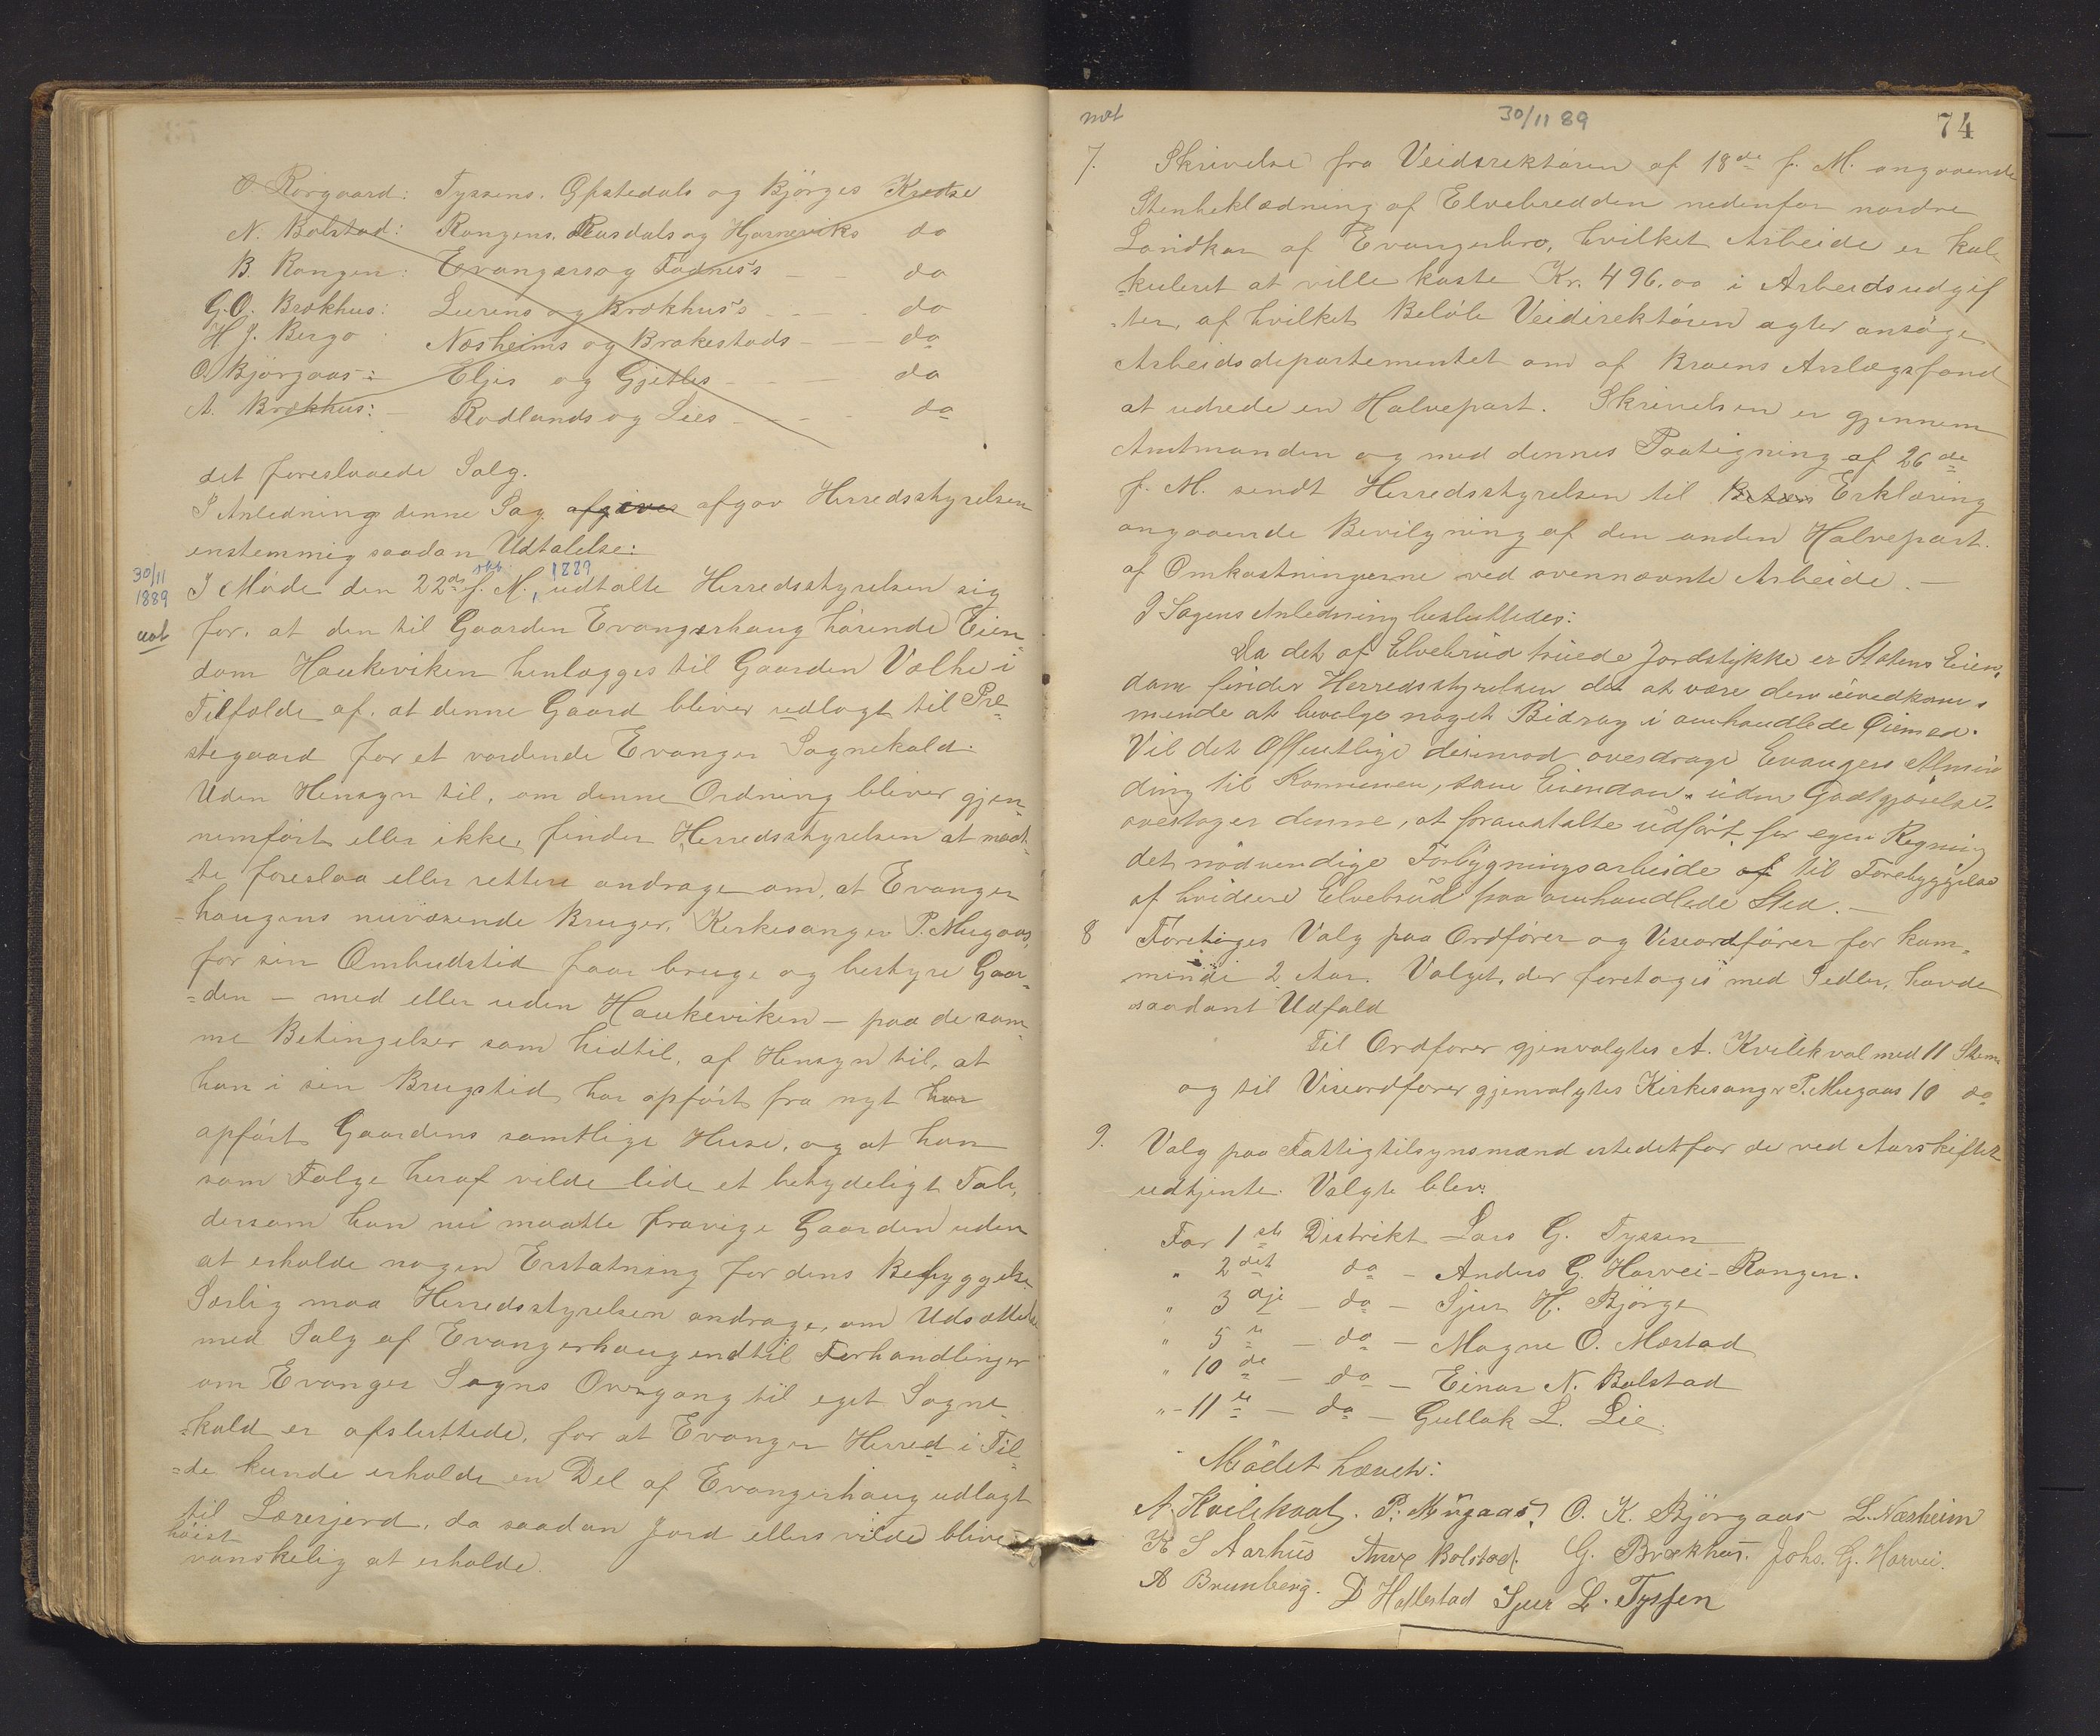 O Rørgaard: Tyssens, Gjistedals og Bjørges Kredse
N. Bolstad: Rongens, Rasdals og Hjørneviks do
B. Rongen: Evangers og Fadnes's - - do
G.O. Brækhus: Lurens og Brækhus's - - - do
H. J. Bergo : Næsheims og Brakestads - - - do
O. Bjørgaas: Eljes og Gjetles - - - do
A. Brækhus: - Rødlands og Lies - - - do
det foreslaaede Salg.
I Anledning denne Sag afgives afgav Herredsstyrelsen
enstemmig saadan Udtalelse:
30/11 1889 okt. 1889
I Møde den 22de f. M., udtalte Herredsstyrelsen sig
uat for, at den til Gaarden Evangerhaug hørende Eien-
dom Haukeviken henlægges til Gaarden Vælhe i
Tilfælde af, at denne Gaard bliver udlagt til Pre-
stegaard for et vordende Evanger Sognekald.
Uden Hensyn til, om denne Ordning bliver gjen-
nemført eller ikke, finder Herredsstyrelsen at maat-
te foreslaa eller rettere andrage om, at Evanger-
haugens nuværende Bruger, Kirkesanger P. Mugaas,
for sin Ombudstid faar bruge og bestyre Gaar-
=den - med eller uden Haukeviken - paa de sam-
me Betingelser som hidtil, af Hensyn til, at
han i sin Brugstid har opført fra nyt har
opført Gaardens samtlige Huse, og at han
som Følge heraf vilde lide et betydeligt Tab,
dersom han nu maatte fravige Gaarden uden
at erholde nogen Erstatning for dens Bebyggelse.
Særlig maa Herredsstyrelsen andrage, om Udsættelse
med Salg af Evangerhaug indtil Forhandlinger
om Evanger Sogns Overgang til eget Sogne-
=kald er afsluttede, for at Evanger Herred i Til-
=de kunde erholde en Del af Evangerhaug udlagt
til Lærerjord, da saadan Jord ellers vilde blive
høist
vanskelig at erholde.
mat 30/11 89 74
7. Skrivelse fra Veidirektøren af 18de f. M. angaaende
Stenbeklædning af Elvebredden nedenfor nordre
Landkar af Evangerbro, hvilket Arbeide er kal-
=kuleret at ville koste Kr. 496.00 i Arbeidsudgif
=ter, af hvilket Beløb Veidirektøren agter ansøge
Arbeidsdepartementet om af Broens Anlægsfond
at udrede en Halvepart. Skrivelsen er gjennem
Amtmanden og med dennes Paategning af 26de
f. M. sendt Herredsstyrelsen til Erklæring
angaaende Bevilgning af den anden Halvepart
af Omkostningerne ved ovennævnte Arbeide. -
I Sagens Anledning besluttedes:
Da det af Elvebrud truede Jordstykke er Statens Eien-
dom finder Herredsstyrelsen det at være den uvedkom-
mende at bevilge noget Bidrag i omhandlede Øiemed.
Vil det Offentlige derimod overdrage Evangers Almin
ding til Kommunen, som Eiendom uden Godtgjørelse,
overtager denne, at foranstalte udført for egen Regning
det nødvendige Forbygningsarbeide af til Forebyggelse
af hvidere Elvebrud paa omhandlede Sted. -
8 Foretoges Valg paa Ordfører og Viseordfører for kom-
mende 2 Aar. Valget, der foretoges med Sedler, havde
saadant Udfald
Til Ordfører gjenvalgtes A. Kvilekval med 11 Stem
og til Viseordfører gjenvalgtes Kirkesanger P. Mugaas 10 do
9. Valg paa Fattigtilsynsmænd istedetfor de ved Aarsskiftet
udtjente. Valgte blev:
For 1ste Distrikt Lars G. Tyssen
" 2det do - Anders G. Horvei-Rongen.
" 3dje - do - Sjur H. Bjørge
" 5te - do - Magne O. Mæstad
" 10de - do - Einar N. Bolstad
" - 11te - do - Gullak L. Lie.
Mødet hævet:
A. Kvilekval. P. Mugaas, O. K. Bjørgaas L. Næsheim
K S Aarhus Bolstad. G. Brækhus. Johs. G. Horvei.
A Brunborg. D Hallestad Sjur L. Tyssen